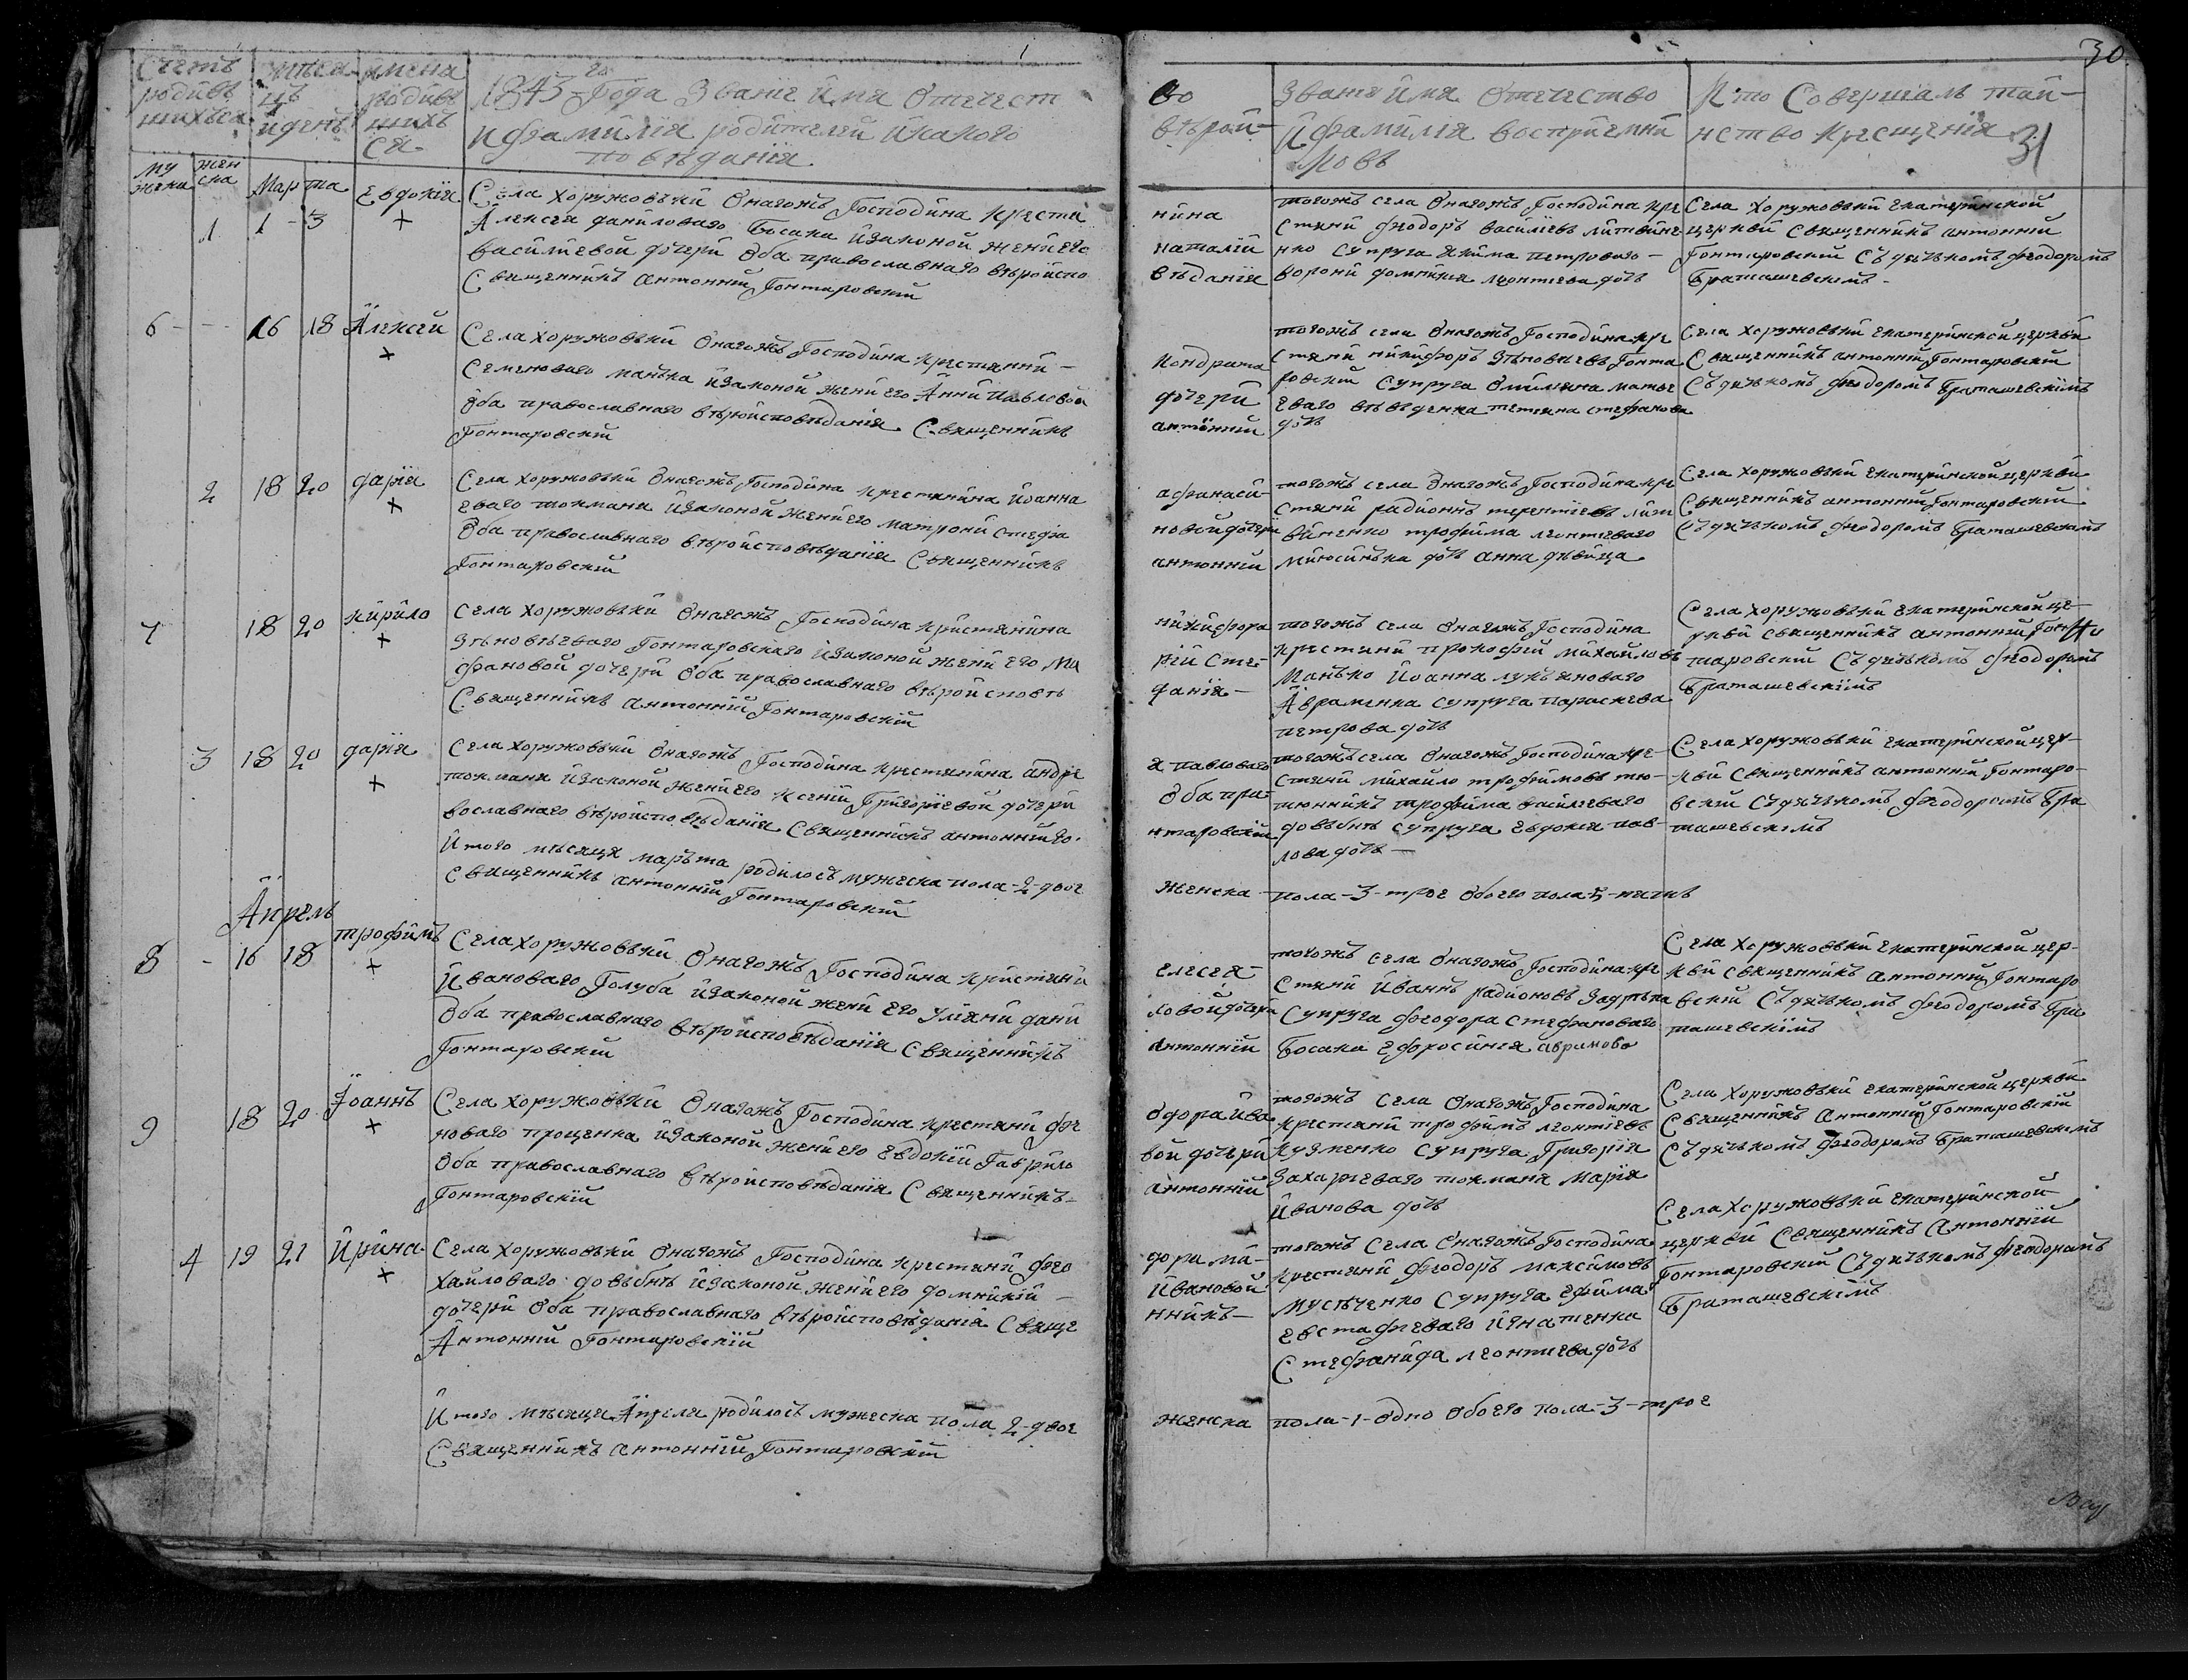 30
Счетъ родивъшихъся
мѣсяцъ и день
имена родившихъся
1843 го Года Званіе имя Отечест
и фамилія родителей и какого
вѣданія
во
вѣрой-
Званіе имя Отечество
и фамилія воспріемни
ковъ
Кто Совершалъ таи-
нство крещенія
31
му жеска
жен ска
Марта
1 1 - 3
Евдокія
Села хоружовъки Онагожъ Господина крестя
Алексея даниловаго Босака изаконой жени его
василіевой дочери Оба православнаго вѣроиспо
Священникъ антонній Гонтаровскій
нина
наталіи
вѣданія
тогожъ села Онагожъ Господина кре
стяни феодоръ василіевъ литвине
нко Супруга якима петроваго -
ворони домникия леонтиева дочь
Села хоружовъки екатеринской
церкви Священникъ антонній
Гонтаровскій Съ дячъкомъ феодоромъ
Браташевскимъ -
6 - - - 16 18 Алексей
Села хоружовъки Онагожъ Господина крестяни -
Семеноваго манъка изаконой жени его Анни павловой
Оба православнаго вѣроисповѣданія Священникъ
Гонтаровскій
кондрата
дочери
антонній
тогожъ села Онагожъ Господина кре
стяни никифоръ Зѣновиевъ Гонта
ровскій Супруга Омиляна матве
еваго тетяна стефанова
дочь
Села хоружовъки екатеринской церкви
Священникъ антонній Гонтаровскій
Съ дячъкомъ феодоромъ Браташевскимъ
2 18 20 дарія
Села хоружовъки Онагожъ Господина крестянина Иоанна
еваго токмана изаконой жени его матрони стефа
Оба православнаго вѣроисповѣданія Священникъ
Гонтаровскій
афанаси-
новой дочери
антонній
тогожъ села Онагожъ Господина кре
стяни радионъ терентиевъ лит
виненко трофима леонтеваго
дочь анна дѣвица
Села хоружовъки екатеринской церкви
Священникъ антонній Гонтаровскій
Съ дячъкомъ феодоромъ Браташевскимъ
7 18 20 кирило
Села хоружовъки Онагожъ Господина кристянина
Зѣновѣеваго Гонтаровскаго изаконой жени его Ма
фановой дочери Оба православнаго вѣроисповѣ
Священникъ антонній Гонтаровскій
никифора
рій Сте-
данія -
тогожъ села Онагожъ Господина
крестяни прокофий михайловъ
Манъко Иоанна лукъяноваго
Авраменка супруга параскева
петрова дочь
Села хоружовъки екатеринской це-
ркви священникъ антонній Гон
таровскій Съ дячъкомъ феодоромъ
Браташевскимъ
3 18 20 дарія
Села хоружовъки Онагожъ Господина крестянина андре
токманя изаконой жени его ксеніи Григориевой дочери
вославнаго вѣроисповѣданія Священникъ антонній Го.
я павловаго
Оба пра-
нтаровскій
тогожъ села Онагожъ Господина кре-
стяни михайло трофимовъ тю-
тюнникъ трофима василеваго
довъбнь супруга Евдокия пав-
лова дочь -
Села хоружовъки екатеринской цер-
кви священникъ антонній Гонтаро-
вскій Съ дячъкомъ феодоромъ Бра
ташевскимъ
Итого мѣсяця маръта родилосъ мужеска пола -2- двое
Священникъ антонній Гонтаровскій
женска
пола -3- трое Обоего пола -5- пять
Апрель
8 - 16 18 трофимъ
Села хоружовъки Онагожъ Господина кристяни
Ивановаго Голуба изаконой жени его Уліяни дани
Оба православнаго вѣроисповѣданія Священникъ
Гонтаровскій
елесея -
ловой дочери
антонній
тогожъ села Онагожъ Господина кре
стяни Иванъ радионовъ
Супруга феодора Стефановаго
Босака Ефросиния аврамова
Села хоружовъки екатеринской цер-
кви священникъ антонній Гонтаро
вскій Съ дячъкомъ феодоромъ Бра
ташевскимъ
9 18 20 Іоаннъ
Села хоружовъки Онагожъ Господина крестяни фе
новаго проценка изаконой жени его Евдокіи Гаврило
Оба православнаго вѣроисповѣданія Священникъ -
Гонтаровскій
одора ива
вой дочери
антонній
тогожъ Села Онагожъ Господина
крестяни трофимъ леонтіевъ
кузменко Супруга Григорія
Захариеваго токманя Марія
Иванова дочь
Села хоружовъки екатеринской церкви
Священникъ Антонній Гонтаровскій
Съ дячъкомъ феодоромъ Браташевскимъ
4 19 21 Ирина
Села хоружовъки Онагожъ Господина крестяни фео
хайловаго довъбнь изаконой жени его домникіи -
дочери Оба православнаго вѣроисповѣданія Свяще
Антонній Гонтаровскій
дора ми-
Ивановой
нникъ -
тогожъ Села Онагожъ Господина
крестяни феодоръ максимовъ
Мусѣченко Супруга Ефима
Евстафиеваго Игнатенка
Стефанида леонтиева дочь
Села хоружовъки екатеринской
церкви Священникъ Антонній
Гонтаровскій Съ дячъкомъ феодоромъ
Браташевскимъ
Итого мѣсяця Апреля родилосъ мужеска пола 2- двое
Священникъ антонній Гонтаровскій
женска
пола -1- одно Обоего пола -3- трое